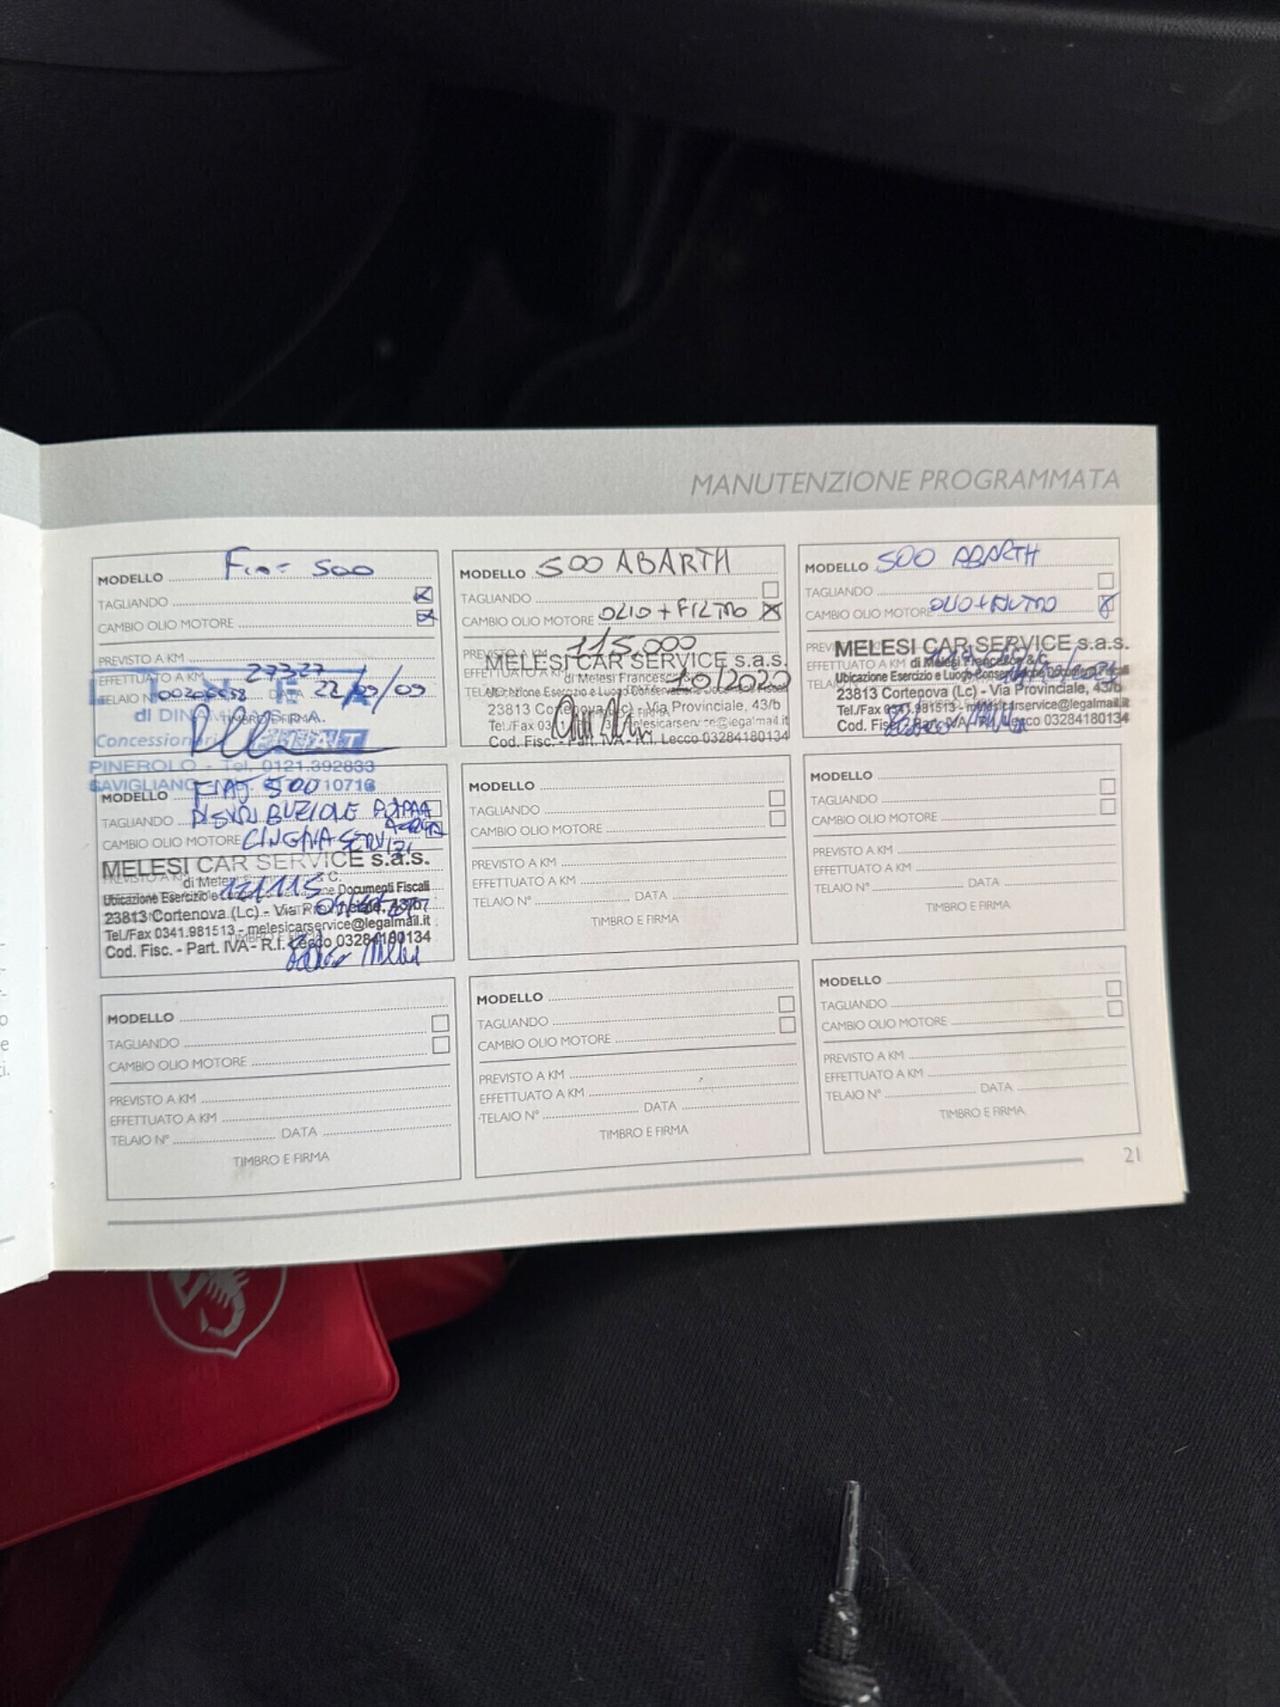 MANUTENZIONE PROGRAMMATA
MODELLO Fiat 500
TAGLIANDO
CAMBIO OLIO MOTORE
PREVISTO A KM
EFFETTUATO A KM 27327
TELAIO N° DATA 22/09/09
TIMBRO E FIRMA
di DINA
Concessionari FIAT
PINEROLO - Tel. 0121.392833
SAVIGLIANO 10716
MODELLO 500 ABARTH
TAGLIANDO
CAMBIO OLIO MOTORE OLIO + FILTRO
PREVISTO A KM 115.000
MELESI CAR SERVICE s.a.s.
EFFETTUATO A KM di Melesi Francesc
10/2020
Ubicazione Esercizio e Luogo Conservazione Documenti Fiscali
23813 Cortenova (Lc) - Via Provinciale, 43/b
Tel./Fax 03 melesicarservice@legalmail.it
Cod. Fisc. - Part. IVA - R.I. Lecco 03284180134
MODELLO 500 ABARTH
TAGLIANDO
CAMBIO OLIO MOTORE OLIO + FILTRO
MELESI CAR SERVICE s.a.s.
EFFETTUATO A KM di Melesi Francesco & C.
Ubicazione Esercizio e Luogo Conser
23813 Cortenova (Lc) - Via Provinciale, 43/b
Tel./Fax 0341.981513 - melesicarservice@legalmail.it
Cod. Fisc. - Part. IVA - R.I. Lecco 03284180134
MODELLO FIAT 500
TAGLIANDO DISTRIBUZIONE POMPA
ACQUA
CAMBIO OLIO MOTORE CINGHIA SERVIZI
MELESI CAR SERVICE s.a.s.
di Melesi C.
121115
Ubicazione Esercizio e Documenti Fiscali
23813 Cortenova (Lc) - Via Provinciale, 43/b
Tel./Fax 0341.981513 - melesicarservice@legalmail.it
Cod. Fisc. - Part. IVA - R.I. Lecco 03284180134
MODELLO
TAGLIANDO
CAMBIO OLIO MOTORE
PREVISTO A KM
EFFETTUATO A KM
TELAIO N° DATA
TIMBRO E FIRMA
MODELLO
TAGLIANDO
CAMBIO OLIO MOTORE
PREVISTO A KM
EFFETTUATO A KM
TELAIO N° DATA
TIMBRO E FIRMA
MODELLO
TAGLIANDO
CAMBIO OLIO MOTORE
PREVISTO A KM
EFFETTUATO A KM
TELAIO N° DATA
TIMBRO E FIRMA
MODELLO
TAGLIANDO
CAMBIO OLIO MOTORE
PREVISTO A KM
EFFETTUATO A KM
TELAIO N° DATA
TIMBRO E FIRMA
MODELLO
TAGLIANDO
CAMBIO OLIO MOTORE
PREVISTO A KM
EFFETTUATO A KM
TELAIO N° DATA
TIMBRO E FIRMA
21